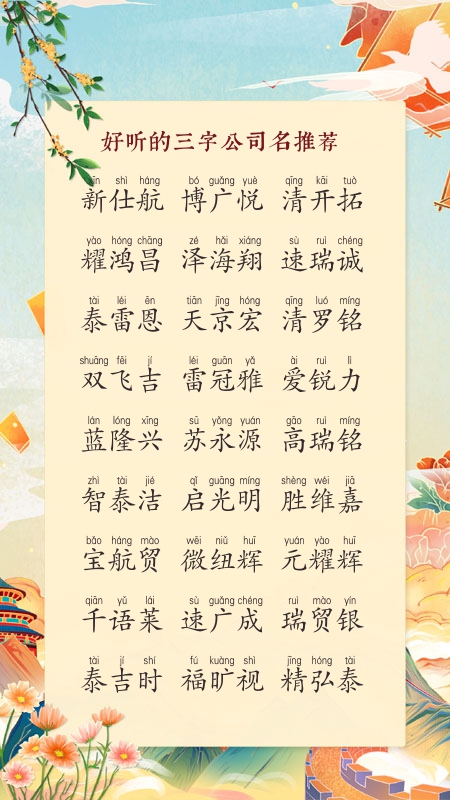 好听的三字公司名推荐
xīn shì háng bó guǎng yuè qīng kāi tuò
新仕航 博广悦 清开拓
yào hóng chāng zé hǎi xiáng sù ruì chéng
耀鸿昌 泽海翔 速瑞诚
tài léi ēn tiān jīng hóng qīng luó míng
泰雷恩 天京宏 清罗铭
shuāng fēi jí léi guān yǎ ài ruì lì
双飞吉 雷冠雅 爱锐力
lán lóng xīng sū yǒng yuán gāo ruì míng
蓝隆兴 苏永源 高瑞铭
zhì tài jié qǐ guāng míng shèng wéi jiā
智泰洁 启光明 胜维嘉
bǎo háng mào wēi niǔ huī yuán yào huī
宝航贸 微纽辉 元耀辉
qiān yǔ lái sù guǎng chéng ruì mào yín
千语莱 速广成 瑞贸银
tài jí shí fú kuàng shì jīng hóng tài
泰吉时 福旷视 精弘泰